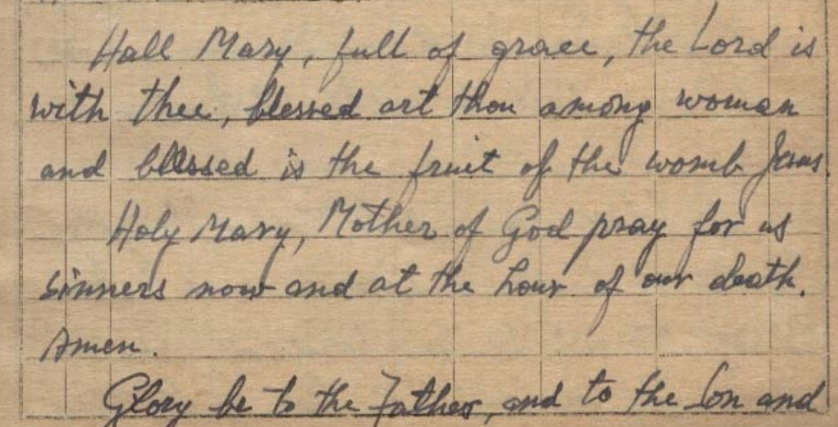 Hall Mary, full of grace, the Lord is
with thee, blessed art thou among woman
and blessed is the fruit of the womb Jesus.
Holy Mary, Mother of God pray for us
sinners now and at the hour of our death.
Amen.
Glory be to the Father, and to the Son and